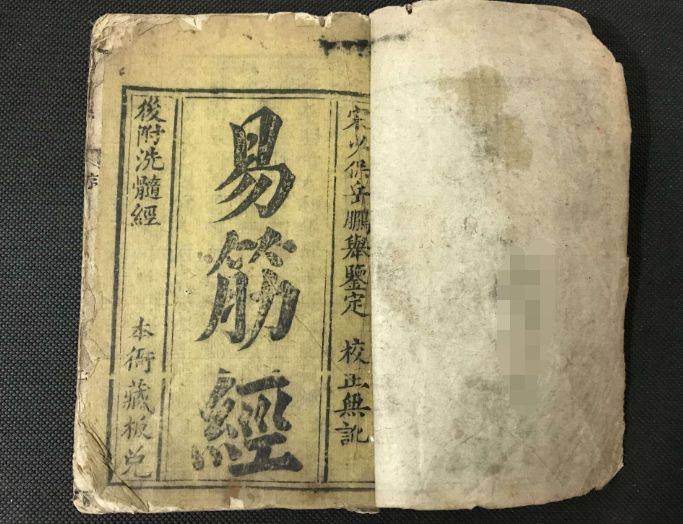 宋少保岳鵬舉鑒定 校正無訛
易筋經
後附洗髓經 本衙藏板兌
序